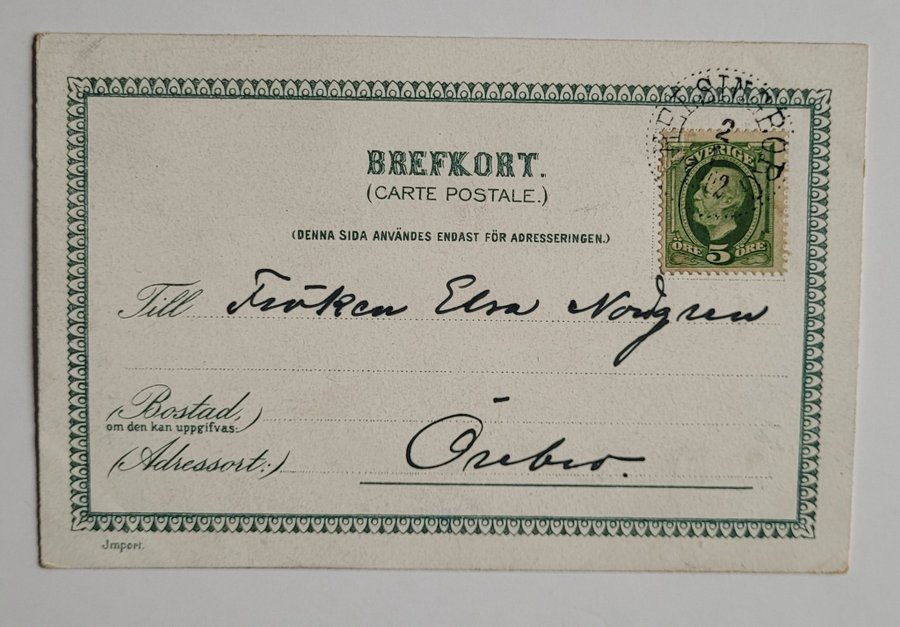 HELSINGBORG
2
12
SVERIGE
ÖRE 5 ÖRE
BREFKORT.
(CARTE POSTALE.)
(DENNA SIDA ANVÄNDES ENDAST FÖR ADRESSERINGEN.)
Till Fröken Elsa Nordgren
(Bostad,)
om den kan uppgifvas:
(Adressort:) Örebro.
Import.